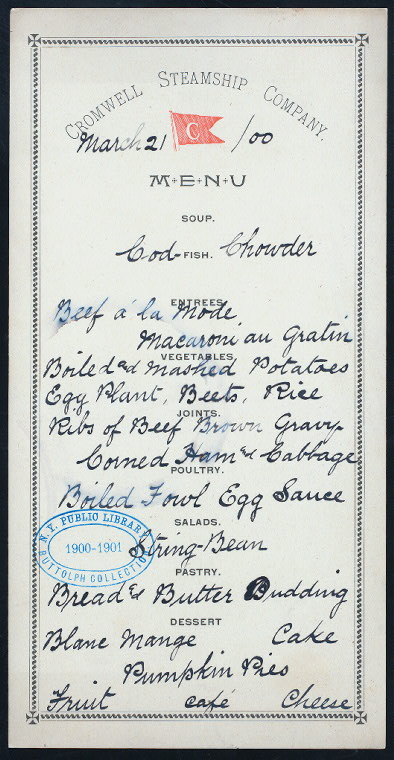 CROMWELL STEAMSHIP COMPANY.
March 21 /00
C
M·E·N·U
SOUP.
Cod- FISH. Chowder
ENTREES
Beef á la Mode
Macaroni au Gratin
VEGETABLES.
Boiled and Mashed Potatoes
Egg Plant, Beets, Rice
JOINTS.
Ribs of Beef Brown Gravy
Corned Ham and Cabbage
POULTRY.
Boiled Fowl Egg Sauce
SALADS.
String-Bean
PASTRY.
Bread & Butter Pudding
DESSERT
Blanc Mange Cake
Pumpkin Pies
Fruit café Cheese
N.Y. PUBLIC LIBRARY
1900-1901
BUTTOLPH COLLECTION